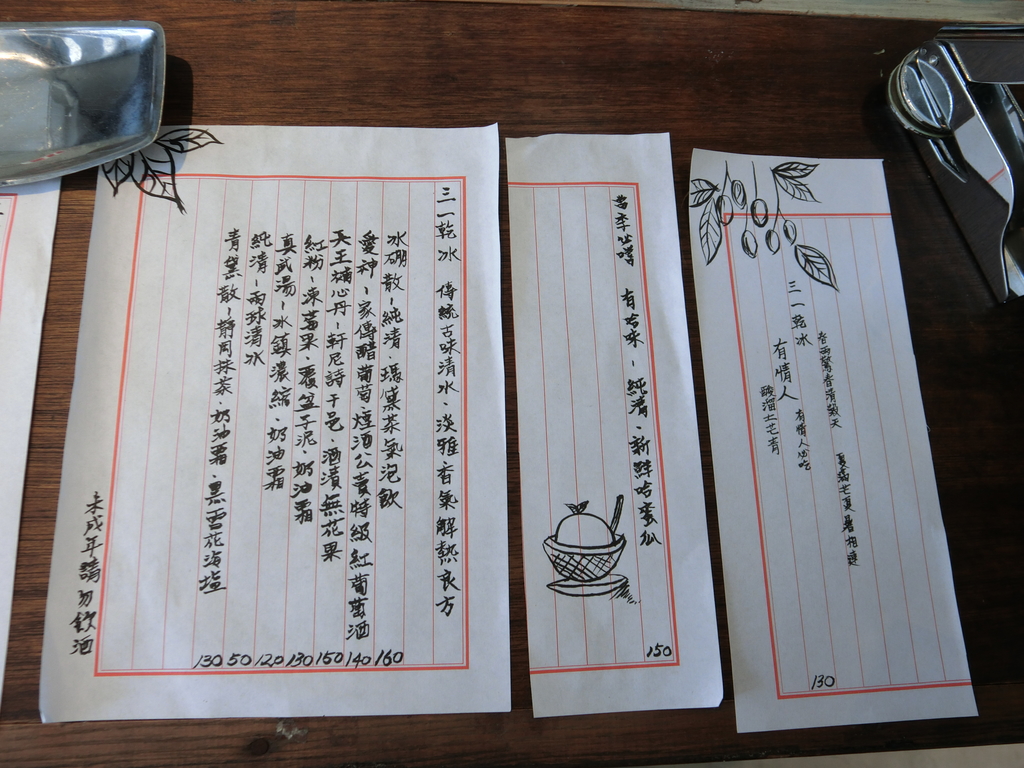 三一乾冰 傳統古味清水、淡雅香氣解熱良方
冰硼散-純清、瑪黛茶氣泡飲 160
愛神-家傳醋葡萄、煙酒公賣特級紅葡萄酒 140
天王補心丹-軒尼詩干邑、酒漬無花果 150
紅粉-凍莓果、覆盆子泥、奶油霜 130
真武湯-冰鎮濃縮 奶油霜 120
純清-兩球清水 50
青黛散-靜岡抹茶、奶油霜、黑雪花海塩 130
未成年請勿飲酒
當季吐嚐 有哈味-純清、新鮮哈蜜瓜
150
三一乾冰
有情人 有情人必吃
酸溜土芒青
130